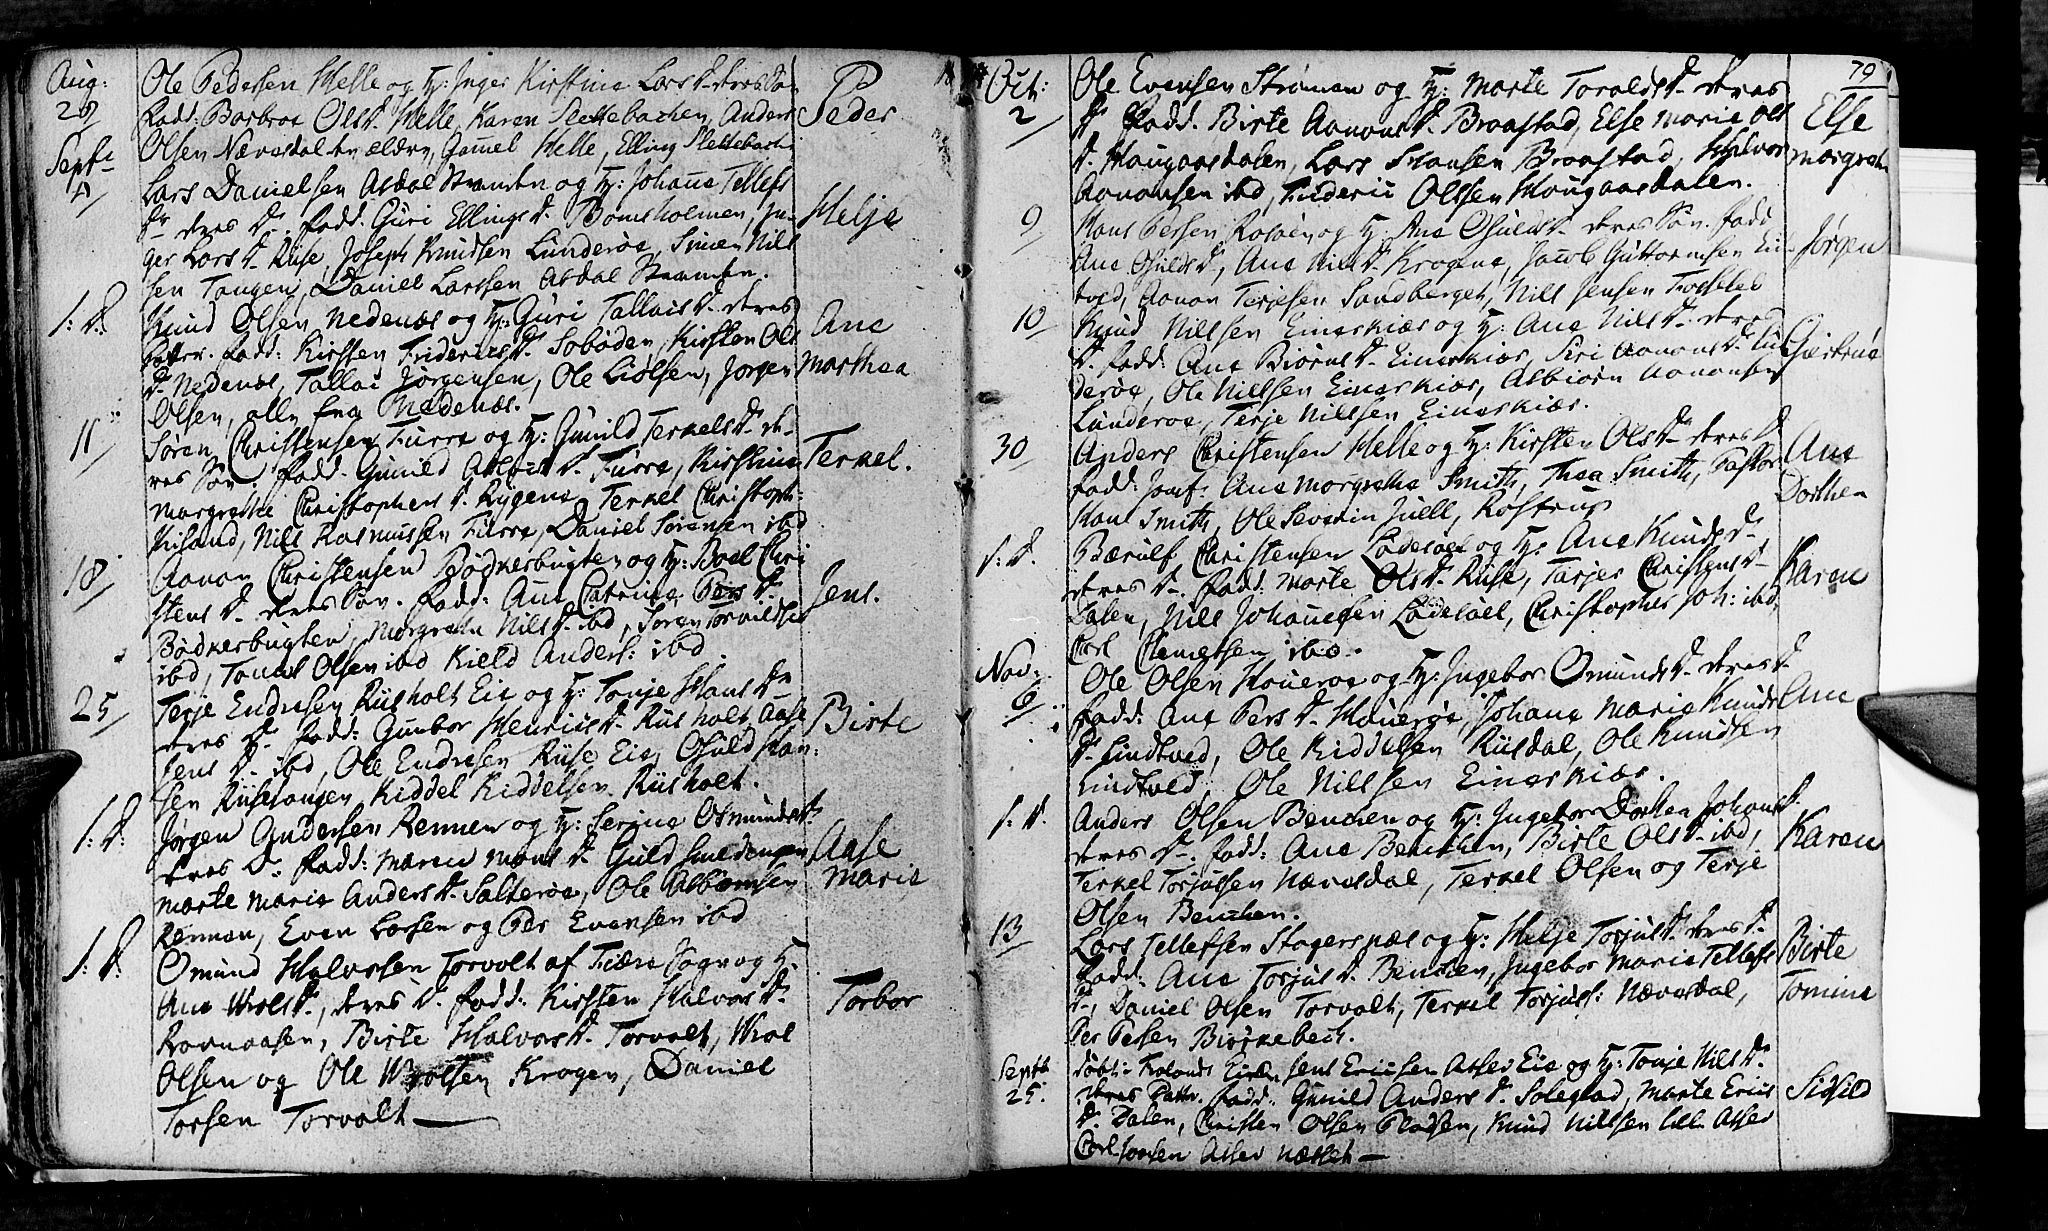 Aug: 28
Ole Pedersen Helle og H: Inger Kirstine Lars D. deres Søn
Fadd: Barbroe Ols D. Helle, Karen Slettebachen, Anders
Olsen Nævesdal den ældre, Gamel Helle, Elling Slettebach
Peder
Sept. 4
Lars Danielsen Asdal Stranden og H: Johanne Tellefs
Dr deres D. fadd: Guri Ellings D. Bomsholmen, In-
ger Lars D. Riise, Joseph Knudsen Lunderøe, Simen Nils
sen Tangen, Daniel Larssen Asdal Stranden.
Helje
s: D.
Knud Olsen Nedenæs og H: Guri Tallais D. deres
Datter. fadd: Kirsten Friderics D. Sobøden, Kirsten Ols
D. Nedenæs, Tallai Jørgensen, Ole Liølsen, Jørgen
Olsen, alle fra Nedenæs.
Ane
Marthea
11
Søren Christensen Furre og H: Gunild Terkels D. de-
res Søn. fadd. Gunild D. Furre, Kirstine
Margrethe Christophers D. Rygene, Terkel Christoph:
Nils Rasmussen Furre, Daniel Sørensen ibd
Terkel.
18
Aanon Christensen Bødkerbugten og H: Boel Chri
stens D. deres Søn. fadd: Ane Catrine Pers D.
Bødkerbugten, Margrethe Nils D. ibd, Søren Torvildsen
ibd, Tomas Olsen ibd Kield Anders: ibd
Jens.
25
Terje Endresen Riisholt Eie og H: Tonje Hans Dr
deres D. fadd: Gunbor Henrics D. Riisholt, Aase
Jens D. ibd, Ole Endresen Riise Eie, Osuld Han:
sen Riisetangen, Kiddel Kiddelsen Riisholt.
Birte
s: D:
Jørgen Andersen Rennen og H: Serine Osmunds D.
deres D. fadd: Maren Mons D. Guldsmedengen
Marte Marie Anders D. Salterøe, Ole Asbiørnsen
Rennen, Even Larsen og Per Evensen ibd
Aase
Marie
s: D.
Omund Halvorsen Torvolt af Fiære Sogn og H.
Ane Wrols D., deres D. fadd: Kirsten Halvors D.
Ravnaasen, Birte Halvors D. Torvolt, Wrol
Olsen og Ole Wrolsen Krogen, Daniel
Torsen Torvolt
Torbor
79
Oct: 2
Ole Evensen Strømen og H: Marte Toralds D. deres
D. fadd. Birte Aanons D. Braastad, Else Marie Ols
D. Hougaasdalen, Lars Hansen Braastad, Halvor
Aanonsen ibd, Frideric Olssen Hougaasdalen.
Else
Margrethe
9
Hans Persen og H: Ane Osulds D. deres Søn. fadd
Ane Osulds D., Ane Nils D. Krogene, Jacob Guttormsen Lin-
tved, Aanon Terjesen Sandberget, Nils Jensen
Jørgen
10
Knud Nilssen Einerkiær og H: Ane Nils D. deres
D. fadd: Ane Biørns D. Einerkiær, Siri Aanons D. Lun
derøe, Ole Nilssen Einerkiær, Asbiørn Aanonsen
Lunderøe, Terje Nilssen Einerkiær.
Giertrue
30
Anders Christensen Helle og H: Kirsten Ols D. deres D
fadd: Jomf. Ane Margrethe Smith, Thea Smith, Pastor
Hans Smith, Ole Severin Juell, Rostrup
Ane
Dorthea
s: D.
Bærulf Christensen Ladesøel og H: Ane Knuds D.
deres D. fadd: Marte Ols D. Riise, Tarjer Christens D
Dalen, Nils Johannesen Ladesøel, Christopher Joh: ibd,
Carl Clemetsen ibd.
Karen
Nov: 6
Ole Olsen Houerøe og H: Ingebor Omunds D. deres D.
fadd: Ane Pers D. Houerøe, Johane Marie Knuds
D. Lindtved, Ole Kiddelsen Riisdal, Ole Knudsen
Lindtved, Ole Nilssen Einerkiær.
Ane
s: D.
Anders Olsen Benchen og H: Ingebor Dorthea Johans D.
deres D. fadd: Ane Benchen, Birte Ols D. ibd,
Terkel Torjussen Nævesdal, Terkel Olsen og Terje
Olsen Benchen.
Karen
13
Lars Tellefsen Stagersnæs og H: Helje Torjus D. deres D.
fadd: Ane Torjus D. Benchen, Ingebor Marie Tellefs
D, Daniel Olsen Torvolt, Terkel Torjuss: Nævesdal,
Per Persen Birkebech.
Birte
Tomine
Septb 25.
døbt i Jens Ericsen Asser Eie og H: Tonje Nils D.
deres Datter. fadd: Gunild Anders D. Solestad, Marte Erics
D. Dalen, Christen Olsen Pladsen, Knud Nilssen lille Asser
Carl Jonsen Asser Næsset
Sisild